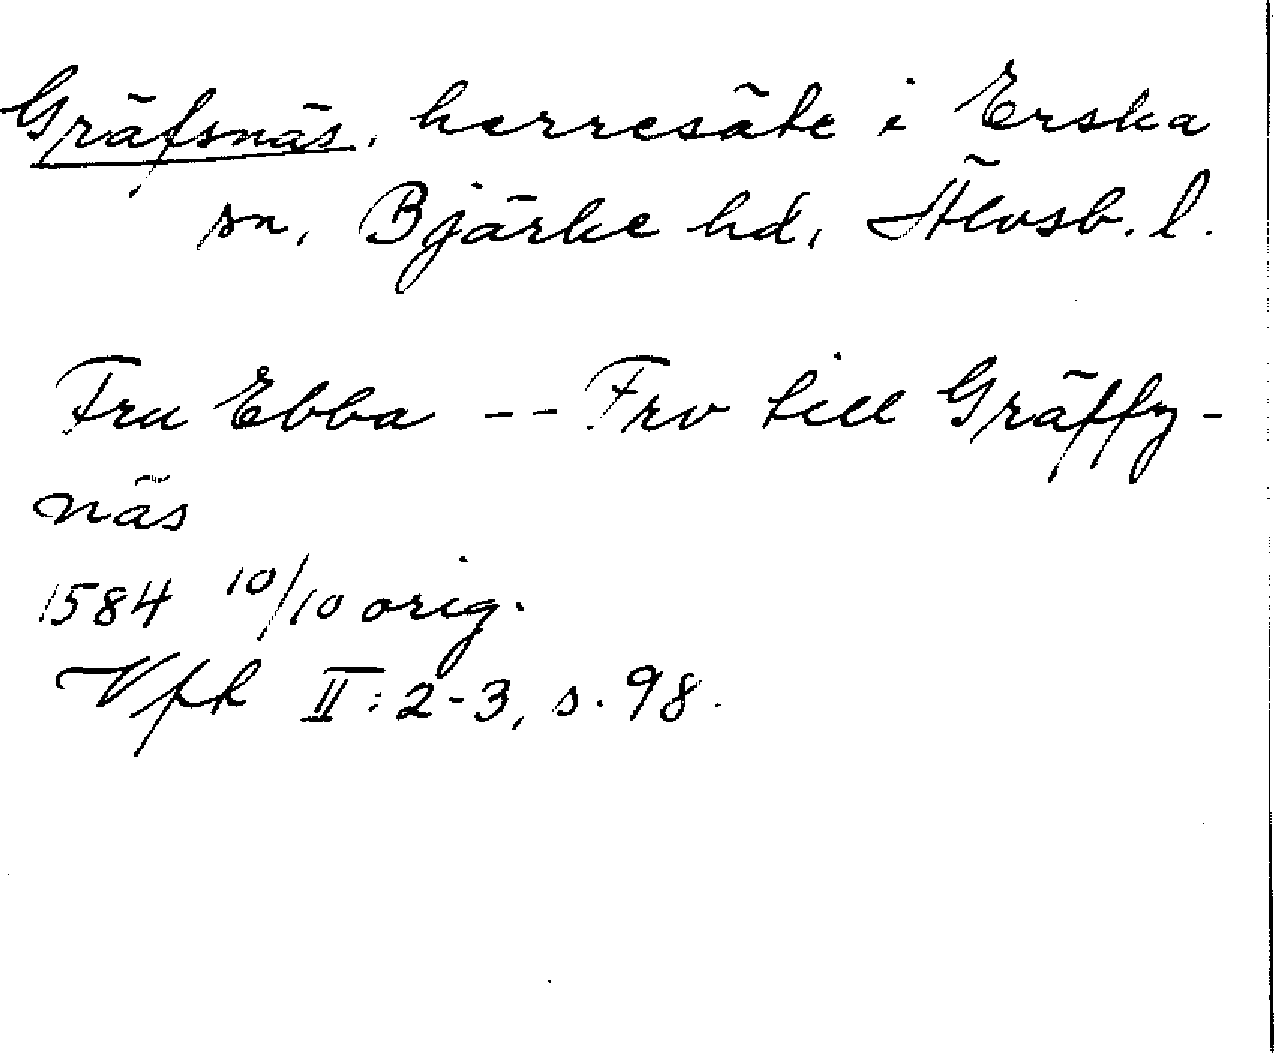 Gräfsnäs, herresäte i Erska
sn, Bjärke hd, Älvsb. l.
Fru Ebba -- Frv till Gräffz-
näs
1584 10/10 orig.
Vfk II: 2-3, s. 98.